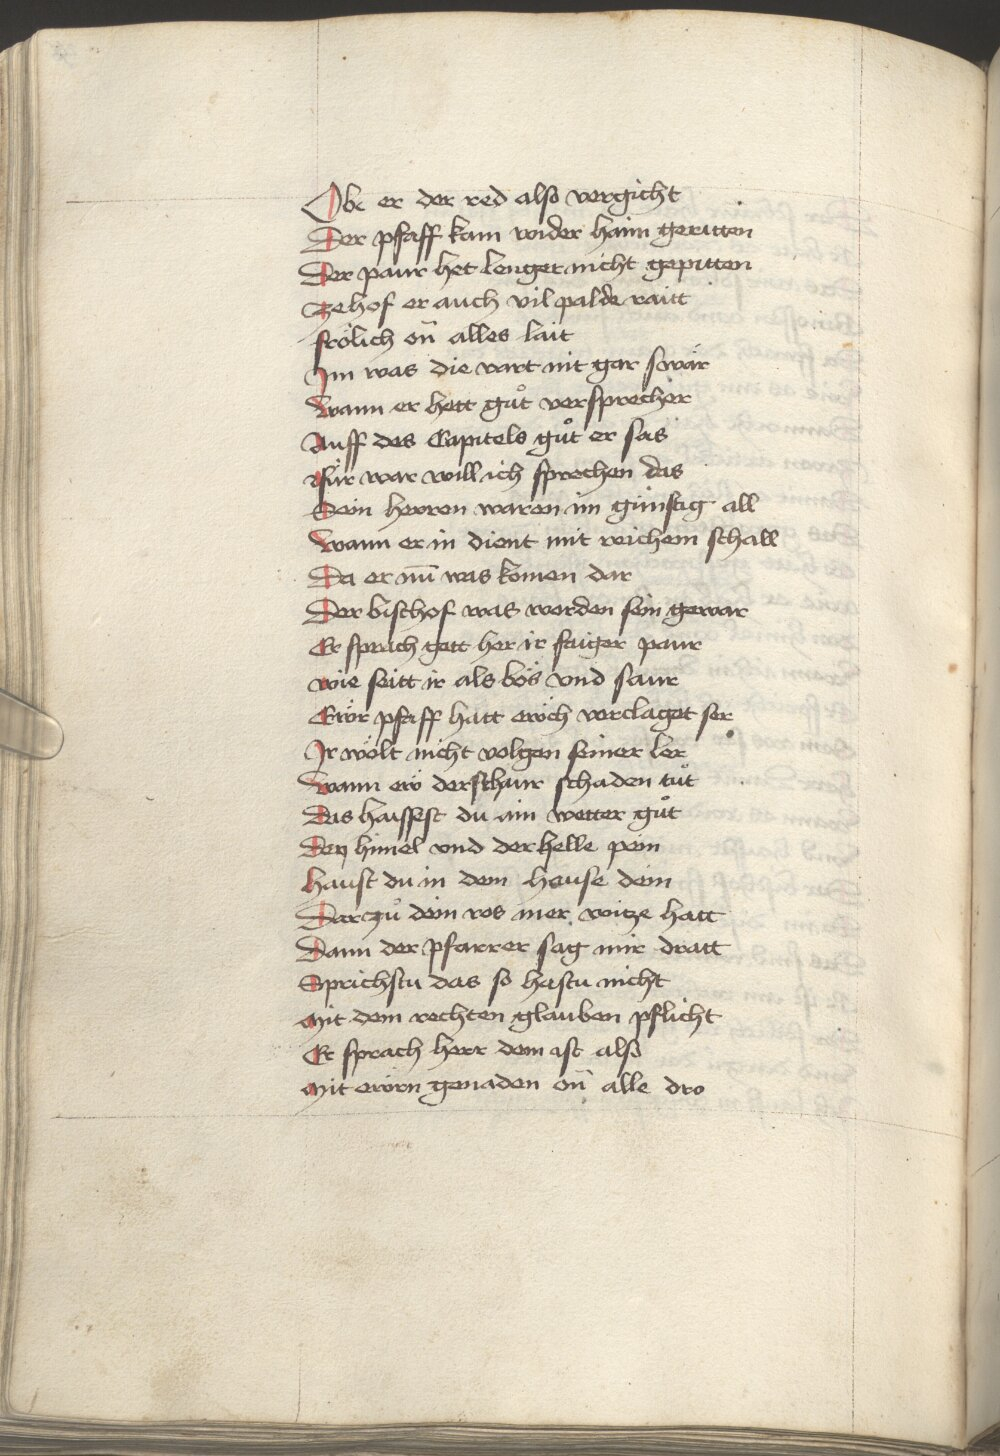 Obe er der red also vergicht
Der pfaff kam wider haim geritten
Der paur het lenger nicht gepitten
Ze hof er auch vil palde raitt
frölich on̄ alles lait
Im was die vart nit gar swär
Wann er hett gůt versprecher
Auff des Capitels gůt er sas
Für war will ich sprechen das
Sein herren waren im günstig all
Wann er in dient mit reichem schall
Da er nu̅ was komen dar
Der bischof was worden sein gewar
Er sprach gett her ir faiger paur
wie seitt ir als bös vnd saur
Ewr pfaff hatt ewch verclaget ser
Ir wölt nicht volgen seiner ler
Wann ew der schaur schaden tůt
Das haissest du ain wetter gůt
Den himel vnd der helle pein
Haust du in dem hause dein
Darczů dein ros mer witze hatt
Dann der pfarrer sag mir dratt
Sprichstu das so hastu nicht
Mit dem rechten glauben pflicht
Er sprach herr dem ist also
Mit ewrn genaden on̄ alle dro